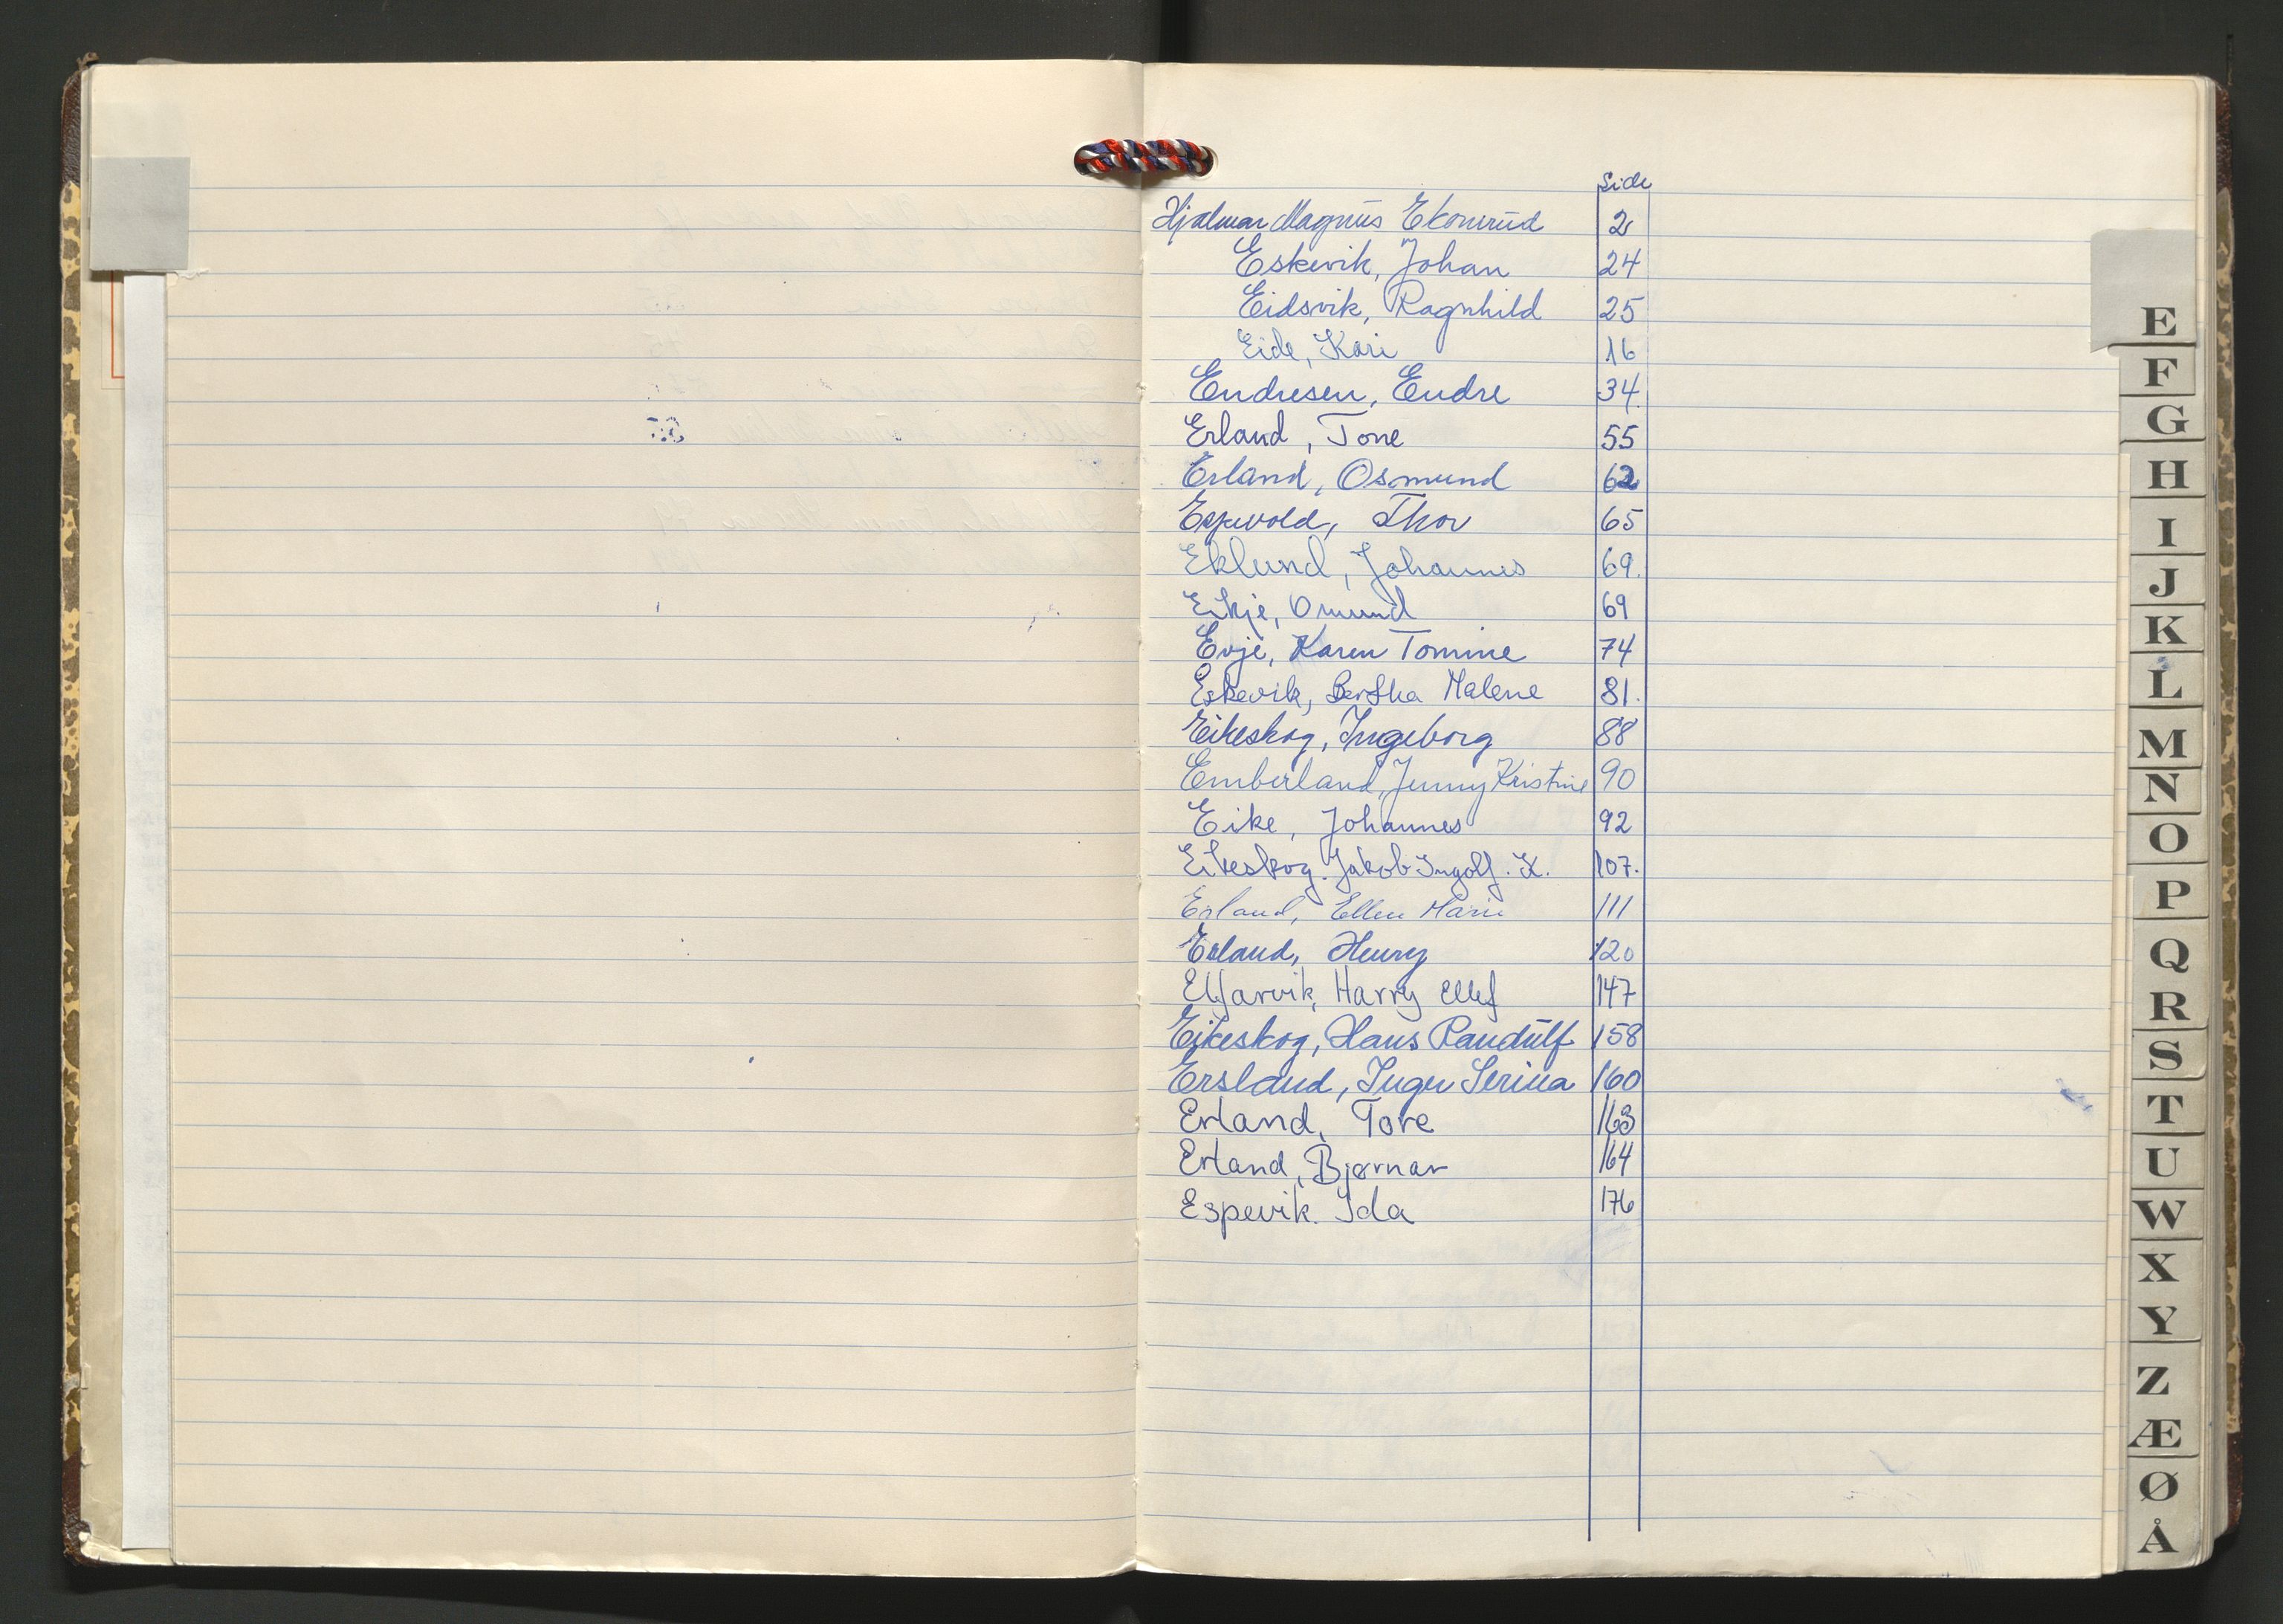 Side
Hjalmar Magnus Ekornrud 2
Eskevik, Johan 24
Eidsvik, Ragnhild 25
Eide, Kari 16
Endresen, Endre 34.
Erland, Tone 55
Erland, Osmund 62
Thor 65
Eklund, Johannes 69.
Eikje, Omund 69
Evje, Karen Tomine 74
Eskevik, Bertha Malene 81.
Eikeskog, Ingeborg 88
Emberland, Jenny Kristine 90
Eike, Johannes 92
Eikeskog. Jakob Ingolf. K. 107.
Erland, Ellen Marie 111
Erland, Henry 120
Elfarvik, Harry Ellef 147
Eikeskog, Hans Randulf 158
Ersland, Inger Serina 160
Erland, Tore 163
Erland, Bjørnar 164
Espevik. Ida 176
E
F
G
H
I
J
K
L
M
N
O
P
Q
R
S
T
U
W
X
Y
Z
Æ
Ø
Å